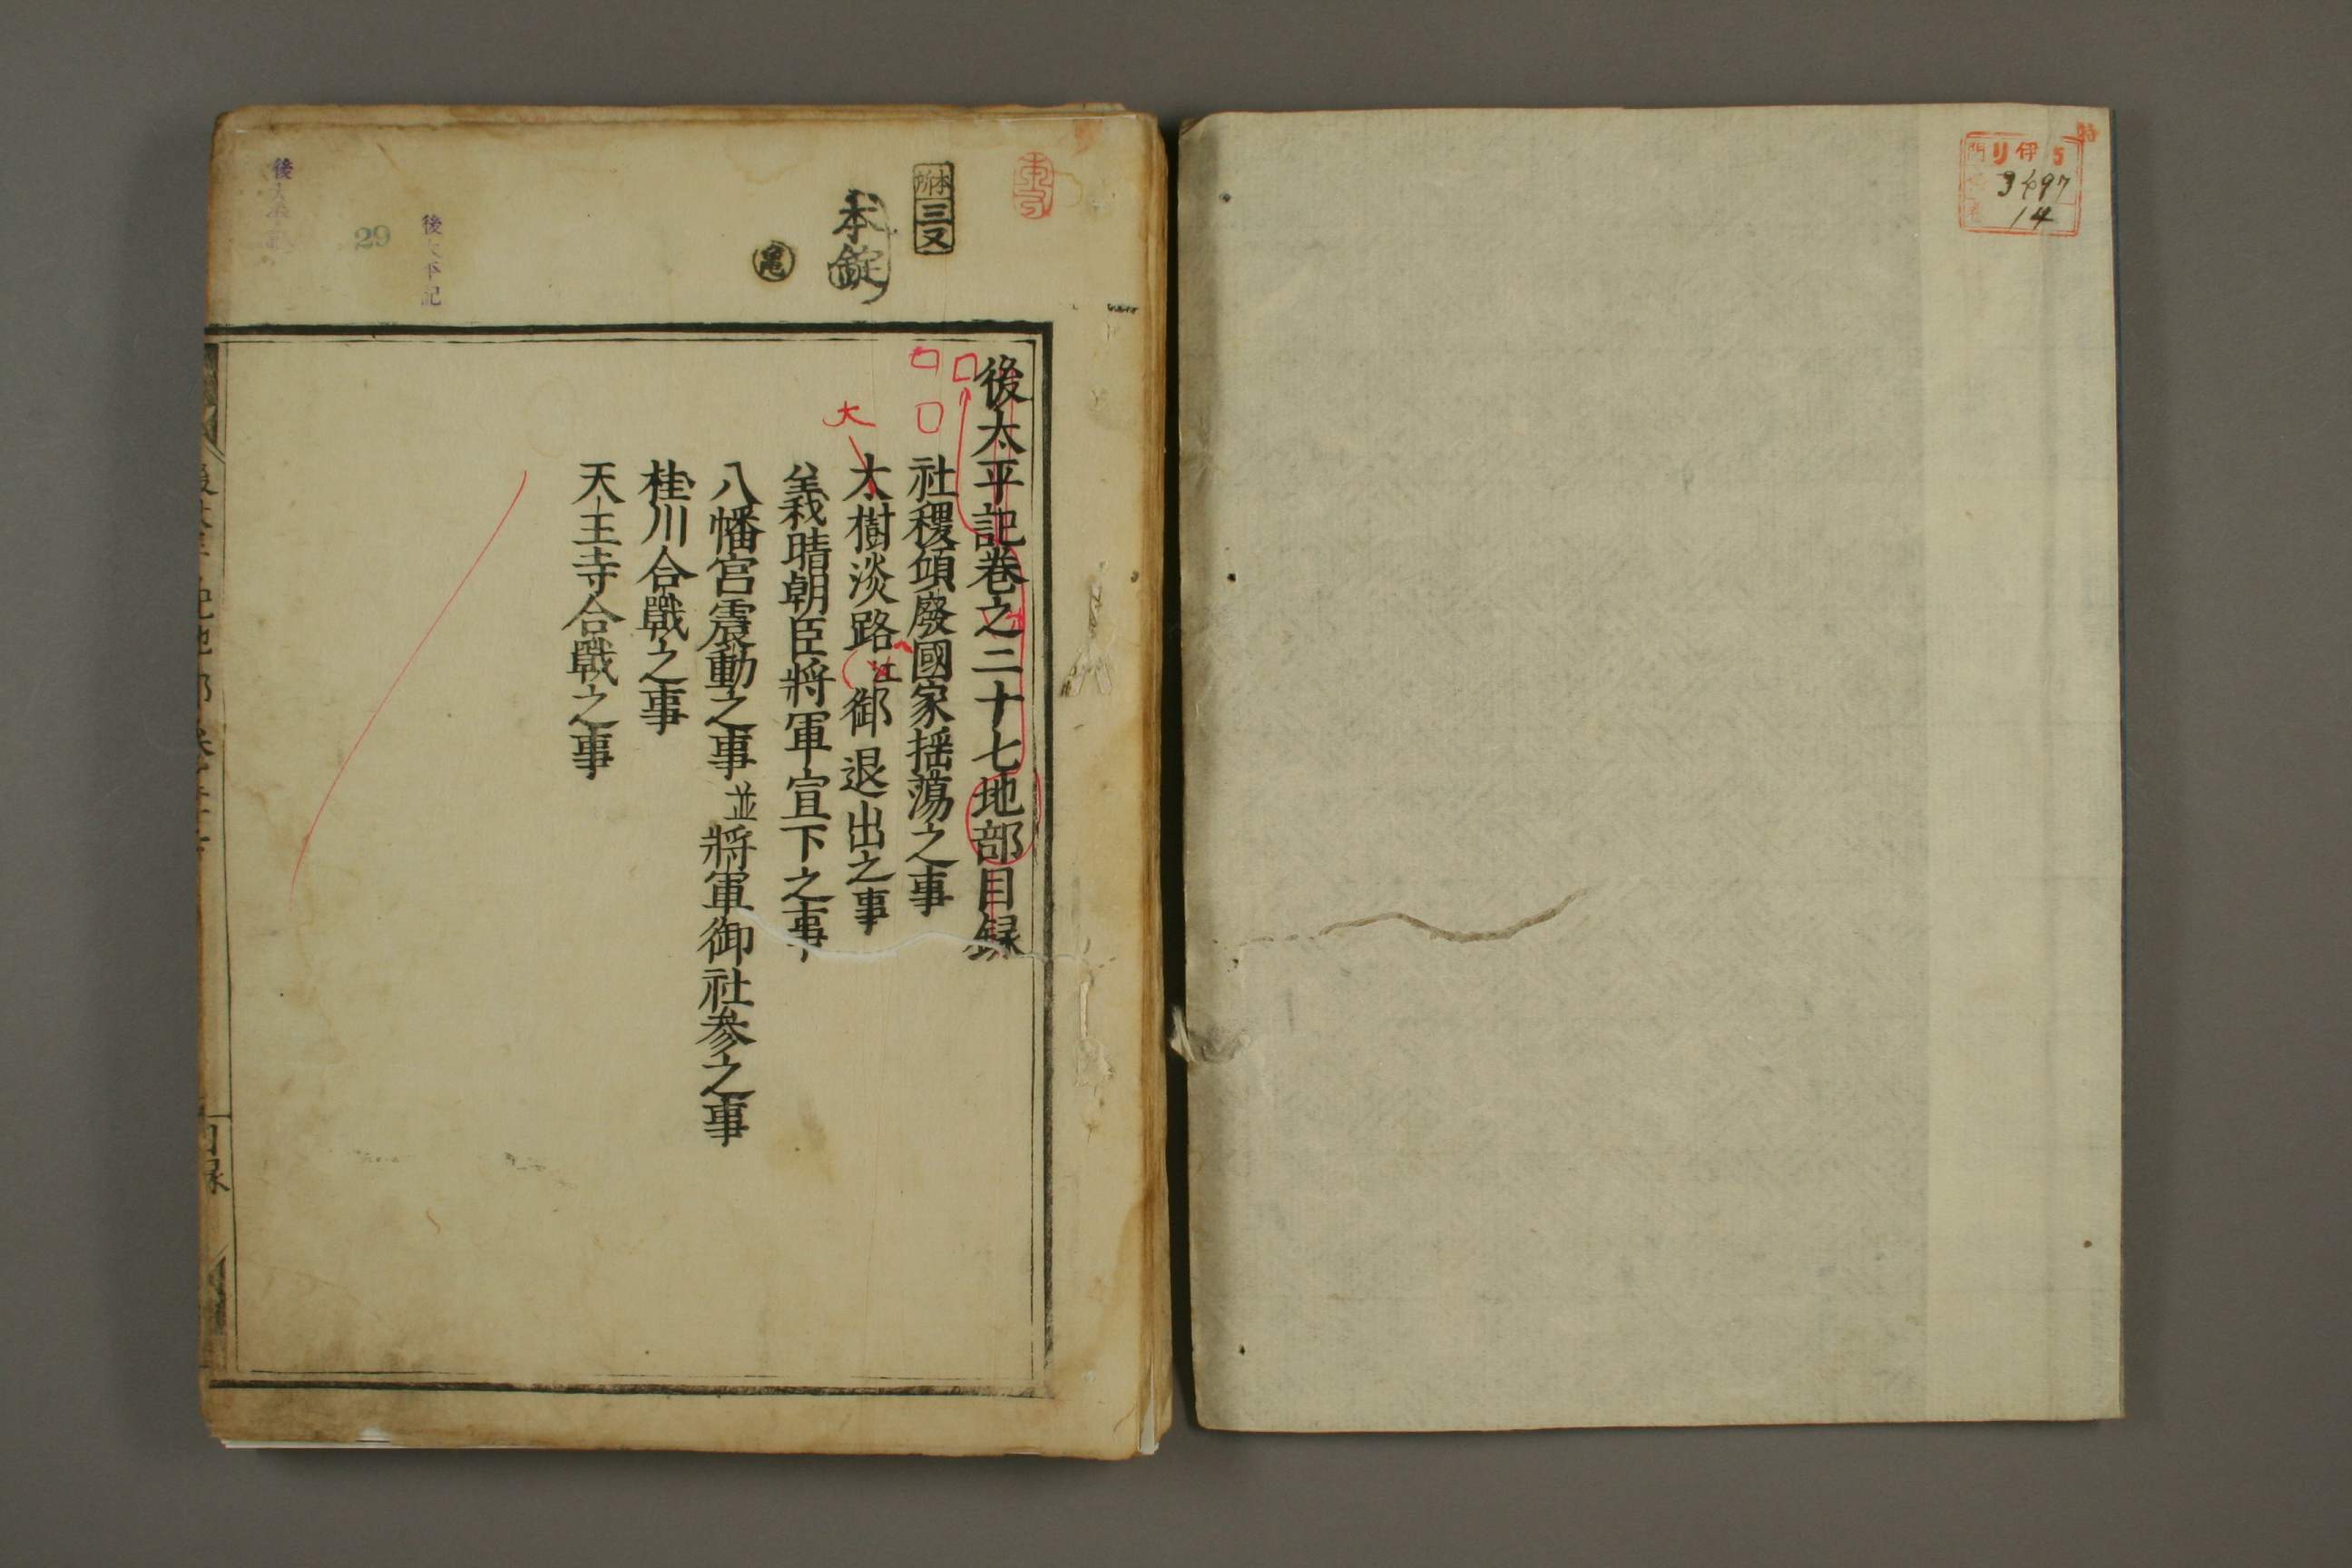 門 リ 伊 5
3497
14
後太平記巻之二十七地部目録
社稷傾廢國家揺蕩之事
大
大樹淡路江御退出之事
義晴朝臣將軍宣下之事
八幡宮震動之事並將軍御社参之事
桂川合戰之事
天王寺合戰之事
本所
三又
本錠
亀
後太平記
29
目録